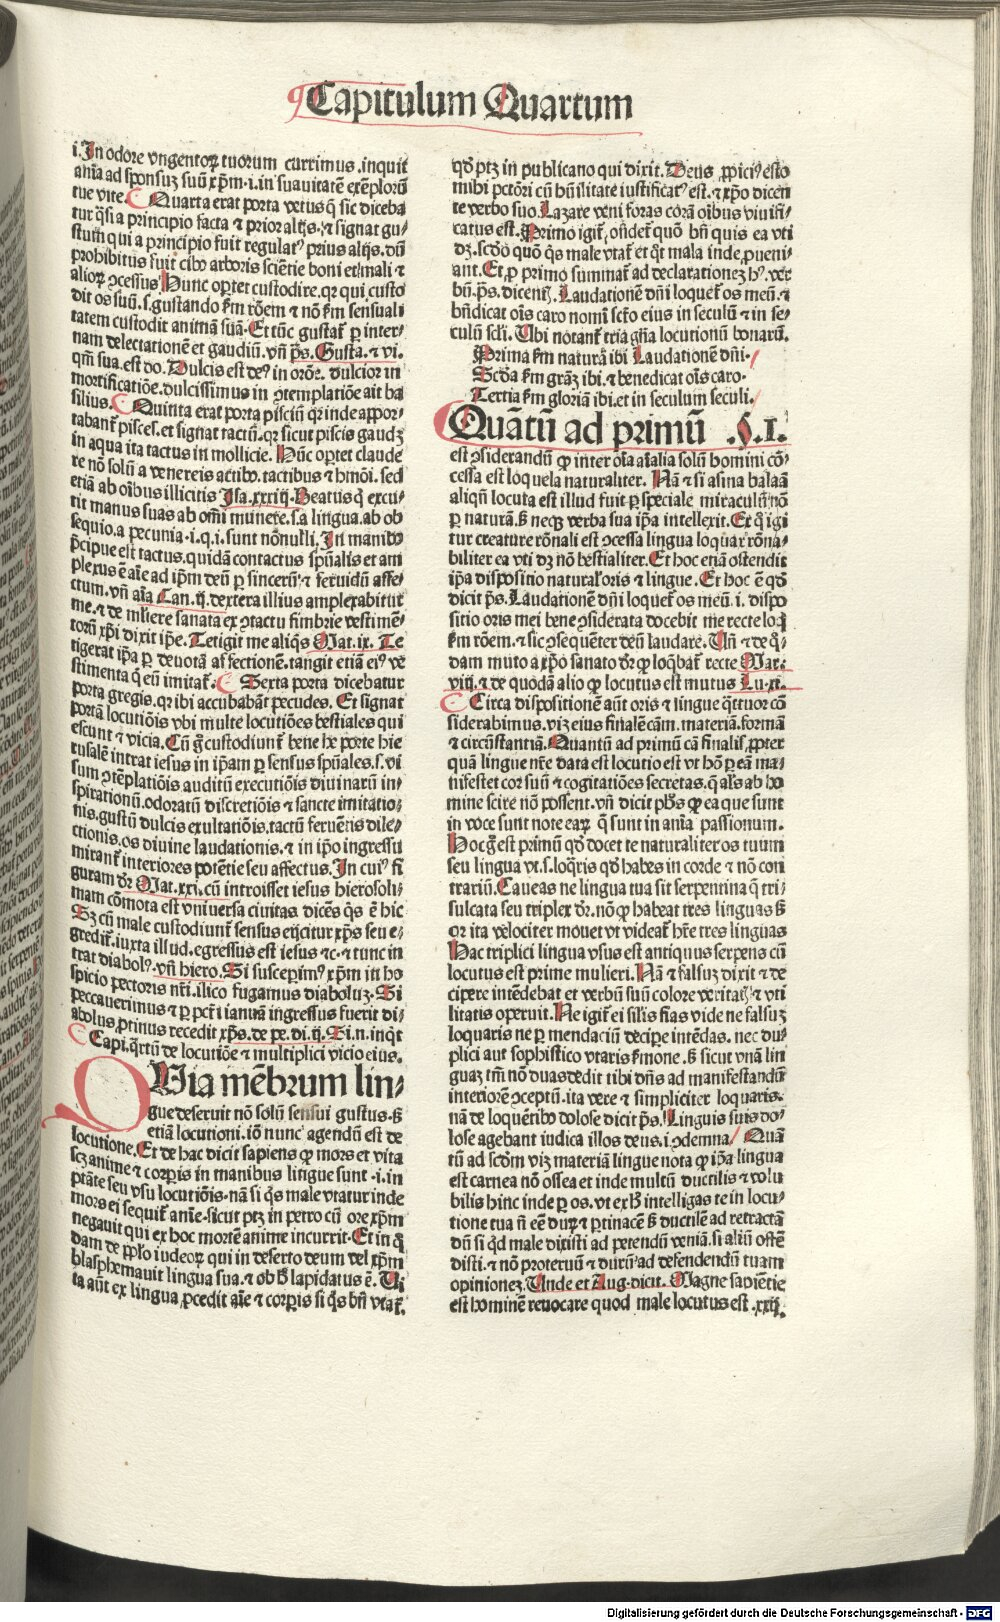 Capitulum Quartum
i. In odore vngentoꝝ tuorum currimus. inquit
aīa ad sponsuꝫ suū xp̄m. i. in suauitatē exēplorū
tue vite. Quarta erat porta vetus q̄ sic diceba
tur q̄si a principio facta ⁊ prior alijs. ⁊ signat gu-
stum qui a principio fuit regulatꝰ prius alijs. dū
prohibitus fuit cibo arboris sciētie boni et mali ⁊
alioꝝ ꝯcessus. Hunc oꝑtet custodire. qꝛ qui custo
dit os suū. s. gustando ẜm rōem ⁊ nō ẜm sensuali
tatem custodit animā suā. Et tūc gustat̄ ꝑ inter-
nam delectationē et gaudiū. vn̄ ps̄. Gusta. ⁊ vi.
qm̄ sua. est do. Dulcis est deꝰ in orōe. dulcior in
mortificatiōe. dulcissimus in ꝯtemplatiōe ait ba
silius. Quinta erat porta pisciū qꝛ inde appor-
tabant̄ pisces. et signat tactū. qꝛ sicut piscis gaudꝫ
in aqua ita tactus in mollicie. Hūc oꝑtet claude
re nō solū a venereis actibꝰ. tactibus ⁊ hmōi. sed
etiā ab oībus illicitis Isa. xxxiij. Beatus q̄ excu-
tit manus suas ab om̄i munere. s. a lingua. ab ob
sequio. a pecunia. i. q. i. sunt nōnulli. In manibꝰ
p̄cipue est tactus. quidā contactus spūalis et am
plexus ē aīe ad ip̄m deū ꝑ sincerū ⁊ feruidū affe-
ctum. vn̄ aīa Can. ij. dextera illius amplexabitur
me. ⁊ de muliere sanata ex ꝯtactu fimbrie vestimē-
torū xp̄i dixit ip̄e. Tetigit me aliq̄s Mat. ix. Te
tigerat ip̄a ꝑ deuotā affectionē. tangit etiā eiꝰ ve
stimenta q̄ eū imitat̄. Sexta porta dicebatur
porta gregis. qꝛ ibi accubabāt pecudes. Et signat
portā locutiōis vbi multe locutiōes bestiales qui
escunt ⁊ vicia. Cū g̊ custodiunt̄ bene he porte hie
rusalē intrat iesus in ip̄am ꝑ sensus spūales. s. vi
sum ꝯtēplatiōis auditū executiōis diuinarū in-
spirationū. odoratū discretiōis ⁊ sancte imitatio-
nis. gustū dulcis exultatiōis. tactū feruētis dile-
ctionis. os diuine laudationis. ⁊ in ip̄o ingressu
mirant̄ interiores potētie seu affectus. In cuiꝰ fi
guram dr̄ Mat. xxi. cū introisset iesus hierosoli-
mam cōmota est vniuersa ciuitas dicēs q̄s ē hic
Sꝫ cū male custodiunt̄ sensus eijcitur xp̄s seu e-
gredit̄. iuxta illud. egressus est iesus ⁊c. ⁊ tunc in
trat diabolꝰ. vn̄ hiero. Si susceperimꝰ xp̄m in ho
spicio pectoris nr̄i. ilico fugamus diaboluꝫ. Si
peccauerimus ⁊ ꝑ pct̄i ianuā ingressus fuerit di-
abolus ꝓtinus recedit xp̄s. de pe. di. ij. Si. n. inq̇t
Capi. q̄rtū de locutiōe ⁊ multiplici vicio eius.
QVia mēbrum lin-
gue deseruit nō solū sensui gustus. ꝫ
etiā locutioni. iō nunc agendū est de
locutione. Et de hac dicit sapiens ꝙ mors et vita
scꝫ anime ⁊ corꝑis in manibus lingue sunt. i. in
ptāte seu vsu locutiōis. nā si q̄s male vtatur inde
mors ei sequit̄ anīe. sicut ptꝫ in petro cū ore xp̄m
negauit qui ex hoc mortē anime incurrit. Et in q̇
dam de ppl̄o iudeoꝝ qui in deserto deum vel xp̄m
blasphemauit lingua sua. ⁊ ob hͦ lapidatus ē. Vi
ta aūt ex lingua ꝓcedit aīe ⁊ corꝑis si q̄s bn̄ vtat̄.
qd̄ ptꝫ in publicano qui dixit. Deus ꝓpiciꝰ esto
mihi pctōri cū hūilitate iustificatꝰ est. ⁊ xp̄o dicen
te verbo suo. Lazare veni foras corā oībus viuifi-
catus est. Primo igit̄ ondet̄ quō bn̄ quis ea vti
dꝫ. scd̄o quō q̄s male vtat̄ et q̄t mala inde ꝓueni-
ant. Et ꝓ primo summat̄ ad declarationeꝫ hꝰ. ver
bū. ps̄. dicentꝭ. Laudationē dn̄i loquet̄ os meū. ⁊
bn̄dicat oīs caro nomī sc̄to eius in seculū ⁊ in se-
culū scl̄i. Vbi notant̄ tria gn̄a locutionū bonarū.
Prima ẜm naturā ibi Laudationē dn̄i.
Scd̄a ẜm grāꝫ ibi. ⁊ benedicat oīs caro.
Tertia ẜm gloriā ibi. et in seculum seculi.
Quātū ad primū .§.I.
est ꝯsiderandū ꝙ inter oīa aīalia solū homini cō-
cessa est loquela naturaliter. Nā ⁊ si asina balaā
aliqn̄ locuta est illud fuit ꝑ speciale miraculū. nō
ꝑ naturā. ꝫ neqꝫ verba sua ip̄a intellexit. Et q̄ igi
tur creature rōnali est ꝯcessa lingua loquar rōna-
biliter ea vti dꝫ nō bestialiter. Et hoc etiā ostendit
ip̄a dispositio naturalꝭ oris ⁊ lingue. Et hoc ē qd̄
dicit ps̄. Laudationē dn̄i loquet̄ os meū. i. dispo
sitio oris mei bene ꝯsiderata docebit me recte loq̄
ẜm rōem. ⁊ sic ꝯsequēter deū laudare. Vn̄ ⁊ de q̇-
dam muto a xp̄o sanato dr̄ ꝙ loq̄bat̄ recte Mar.
viij. ⁊ de quodā alio ꝙ locutus est mutus Lu. xi.
Circa dispositionē aūt oris ⁊ lingue q̄ttuor cō
siderabimus. viꝫ eius finalē cām. materiā. formā
⁊ circūstantiā. Quantū ad primū cā finalis ꝓpter
quā lingue nr̄e data est locutio est vt hō ꝑ eā ma-
nifestet cor suū ⁊ cogitatiōes secretas. q̄ al̄s ab ho
mine scire nō possent. vn̄ dicit ph̄s ꝙ ea que sunt
in voce sunt note eaꝝ q̄ sunt in anīa passionum.
Hoc g̊ est primū qd̄ docet te naturaliter os tuum
seu lingua vt. s. loq̄ris qd̄ habes in corde ⁊ nō con
trariū. Caueas ne lingua tua sit serpentina q̄ tri-
sulcata seu triplex dr̄. nō ꝙ habeat tres linguas ꝫ
qꝛ ita velociter mouet̄ vt videat̄ hr̄e tres linguas
Hac triplici lingua vsus est antiquus serpens cū
locutus est prime mulieri. Nā ⁊ falsuꝫ dixit ⁊ de
cipere intēdebat et verbū suū colore veritatꝭ ⁊ vti
litatis operuit. Ne igit̄ ei silis fias vide ne falsuꝫ
loquaris ne ꝑ mendaciū decipe intēdas. nec du-
plici aut sophistico vtaris ẜmone. ꝫ sicut vnā lin
guaꝫ tm̄ nō duas dedit tibi dn̄s ad manifestandū
interiorē ꝯceptū. ita vere ⁊ simpliciter loquaris.
nā de loquētibꝰ dolose dicit ps̄. Linguis suis do-
lose agebant iudica illos deus. i. ꝯdemna. Quā
tū ad scd̄m viꝫ materiā lingue nota ꝙ ip̄a lingua
est carnea nō ossea et inde multū ductilis ⁊ volu
bilis hinc inde ꝑ os. vt ex hͦ intelligas te in locu-
tione tua n̄ eē durū ⁊ ꝑtinacē ꝫ ductilē ad retractā
dū si qd̄ male dixisti ad petendū veniā. si aliū offē
disti. ⁊ nō proteruū ⁊ durū ad defendendū tuam
opinioneꝫ. Vnde et Aug. dicit. Magne sapiētie
est hominē reuocare quod male locutus est. xxij.
Digitalisierung gefördert durch die Deutsche Forschungsgemeinschaft - DFG